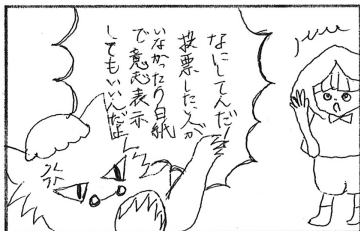 なにしてんだ!
投票したい人が
いなかったり白紙
で意志表示
してもいいんだよ